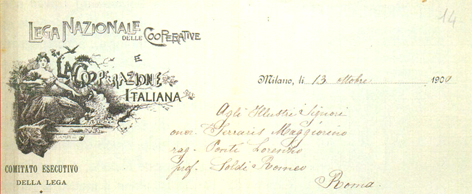 14
LEGA NAZIONALE
DELLE COOPERATIVE
E
LA COOPERAZIONE
ITALIANA
COMITATO ESECUTIVO
DELLA LEGA
Milano, li 13 ottobre 1909
Agli Illustri Signori
onor. Maggiorino
rag. Ponti Lorenzo
prof. Soldi Romeo
Roma.